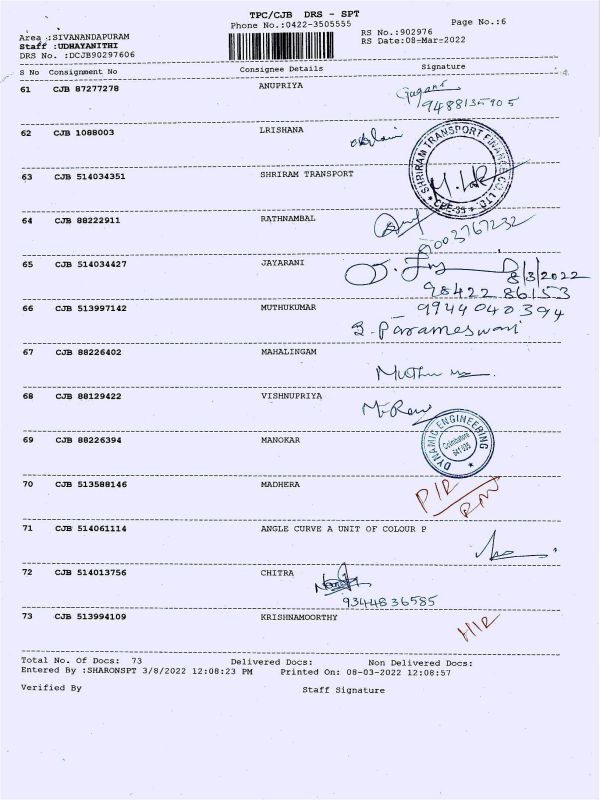 TPC/CJB DRS - SPT
Phone No.:0422-3505555
Page No.:6
Area :SIVANANDAPURAM
RS No.:902976
Staff :UDHAYANITHI
RS Date:08-Mar-2022
DRS No. :DCJB90297606
S No Consignment No Consignee Details Signature
61 CJB 87277278 ANUPRIYA
9488135905
62 CJB 1088003 LRISHANA
SHRIRAM TRANSPORT FINANCE CO. LTD. * CBE-35 *
63 CJB 514034351 SHRIRAM TRANSPORT
64 CJB 88222911 RATHNAMBAL
65 CJB 514034427 JAYARANI
8/3/2022
98422 86153
66 CJB 513997142 MUTHUKUMAR
9944040394
B. Parameswari
67 CJB 88226402 MAHALINGAM
68 CJB 88129422 VISHNUPRIYA
69 CJB 88226394 MANOKAR
DYNAMIC ENGINEERING
Coimbatore
641 035
70 CJB 513588146 MADHERA
71 CJB 514061114 ANGLE CURVE A UNIT OF COLOUR P
72 CJB 514013756 CHITRA
9344836585
73 CJB 513994109 KRISHNAMOORTHY
Total No. Of Docs: 73 Delivered Docs: Non Delivered Docs:
Entered By :SHARONSPT 3/8/2022 12:08:23 PM Printed On: 08-03-2022 12:08:57
Verified By Staff Signature